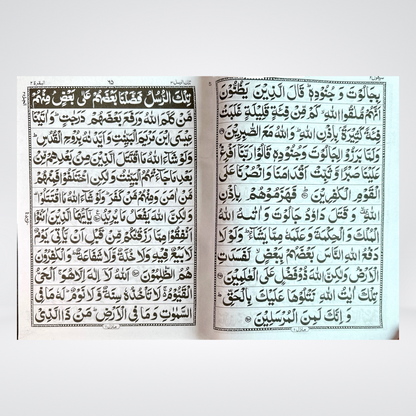 بِجَالُوْتَ وَ جُنُوْدِهٖ قَالَ الَّذِيْنَ يَظُنُّوْنَ
اَنَّهُمْ مُّلٰقُوا اللّٰهِ كَمْ مِّنْ فِئَةٍ قَلِيْلَةٍ غَلَبَتْ
فِئَةً كَثِيْرَةً بِاِذْنِ اللّٰهِ وَاللّٰهُ مَعَ الصّٰبِرِيْنَ
وَلَمَّا بَرَزُوْا لِجَالُوْتَ وَجُنُوْدِهٖ قَالُوْا رَبَّنَا اَفْرِغْ
عَلَيْنَا صَبْرًا وَّ ثَبِّتْ اَقْدَامَنَا وَانْصُرْنَا عَلَى
الْقَوْمِ الْكٰفِرِيْنَ فَهَزَمُوْهُمْ بِاِذْنِ
اللّٰهِ وَ قَتَلَ دَاوٗدُ جَالُوْتَ وَ اٰتٰىهُ اللّٰهُ
الْمُلْكَ وَ الْحِكْمَةَ وَ عَلَّمَهٗ مِمَّا يَشَآءُ وَلَوْلَا
دَفْعُ اللّٰهِ النَّاسَ بَعْضَهُمْ بِبَعْضٍ لَّفَسَدَتِ
الْاَرْضُ وَلٰكِنَّ اللّٰهَ ذُوْ فَضْلٍ عَلَى الْعٰلَمِيْنَ
تِلْكَ اٰيٰتُ اللّٰهِ نَتْلُوْهَا عَلَيْكَ بِالْحَقِّ
وَ اِنَّكَ لَمِنَ الْمُرْسَلِيْنَ
تِلْكَ الرُّسُلُ فَضَّلْنَا بَعْضَهُمْ عَلٰى بَعْضٍ مِنْهُمْ
مَّنْ كَلَّمَ اللّٰهُ وَرَفَعَ بَعْضَهُمْ دَرَجٰتٍ وَ اٰتَيْنَا
عِيْسَى ابْنَ مَرْيَمَ الْبَيِّنٰتِ وَاَيَّدْنٰهُ بِرُوْحِ الْقُدُسِ
وَلَوْ شَآءَ اللّٰهُ مَا اقْتَتَلَ الَّذِيْنَ مِنْ بَعْدِهِمْ مِّنْ
بَعْدِ مَا جَآءَتْهُمُ الْبَيِّنٰتُ وَلٰكِنِ اخْتَلَفُوْا فَمِنْهُمْ
مَّنْ اٰمَنَ وَمِنْهُمْ مَّنْ كَفَرَ وَلَوْ شَآءَ اللّٰهُ مَا اقْتَتَلُوْا
وَلٰكِنَّ اللّٰهَ يَفْعَلُ مَا يُرِيْدُ يٰٓاَيُّهَا الَّذِيْنَ اٰمَنُوْٓا
اَنْفِقُوْا مِمَّا رَزَقْنٰكُمْ مِّنْ قَبْلِ اَنْ يَّاْتِيَ يَوْمٌ
لَّا بَيْعٌ فِيْهِ وَلَا خُلَّةٌ وَّلَا شَفَاعَةٌ وَ الْكٰفِرُوْنَ
هُمُ الظّٰلِمُوْنَ اَللّٰهُ لَآ اِلٰهَ اِلَّا هُوَ اَلْحَيُّ
الْقَيُّوْمُ لَا تَاْخُذُهٗ سِنَةٌ وَّلَا نَوْمٌ لَهٗ مَا فِي
السَّمٰوٰتِ وَمَا فِي الْاَرْضِ مَنْ ذَا الَّذِيْ